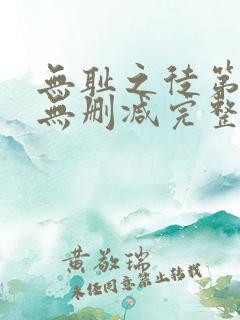 無耻之徒第
無删减完整
黄敬瑞
未经同意禁止转载